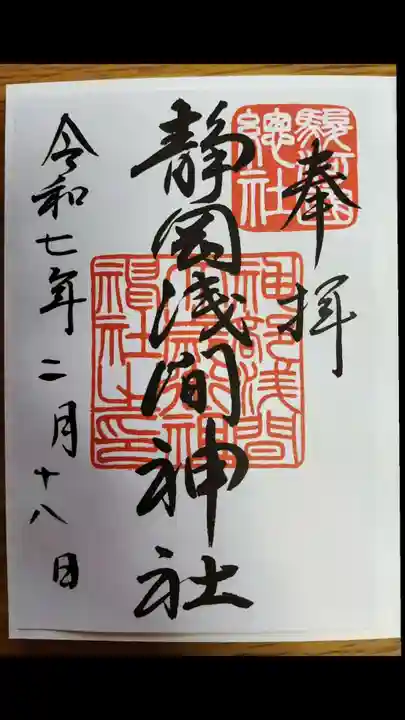 奉拝
駿河國
總社
静岡浅間神社
神部浅間
令和七年二月十八日